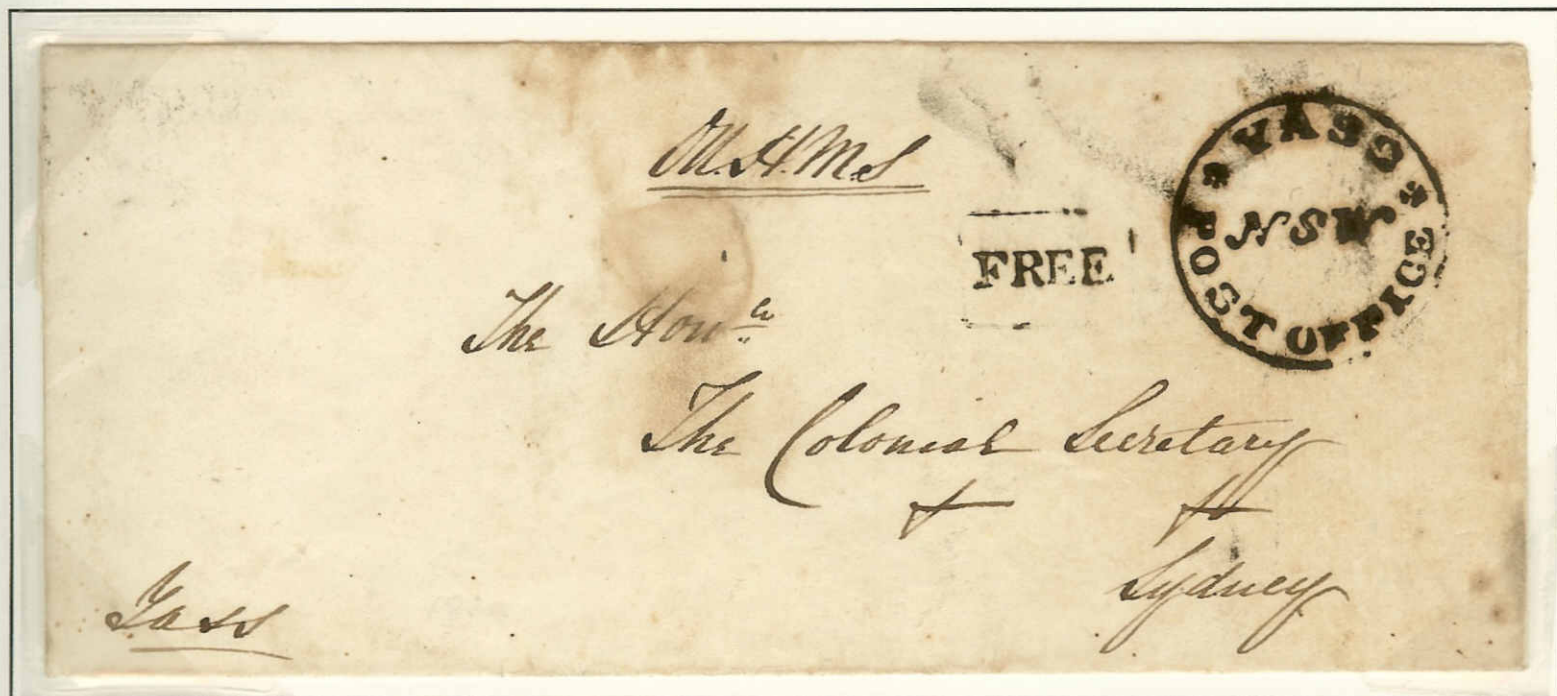 O.H.M.S
FREE
YASS
NSW
POST OFFICE
The Hon.
The Colonial Secretary
Sydney
Yass